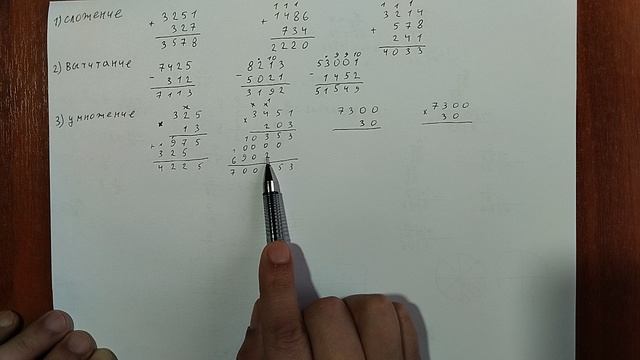 1) сложение
3251
+
327
3578
111
1486
+
734
2220
111
3214
578
+
241
4033
2) вычитание
7425
-
312
7113
10
8213
-
5021
3192
9910
53001
-
1452
51549
3) умножение
325
×
13
975
+
325
4225
3451
×
203
10353
0000
6902
7300
30
7300
×
30